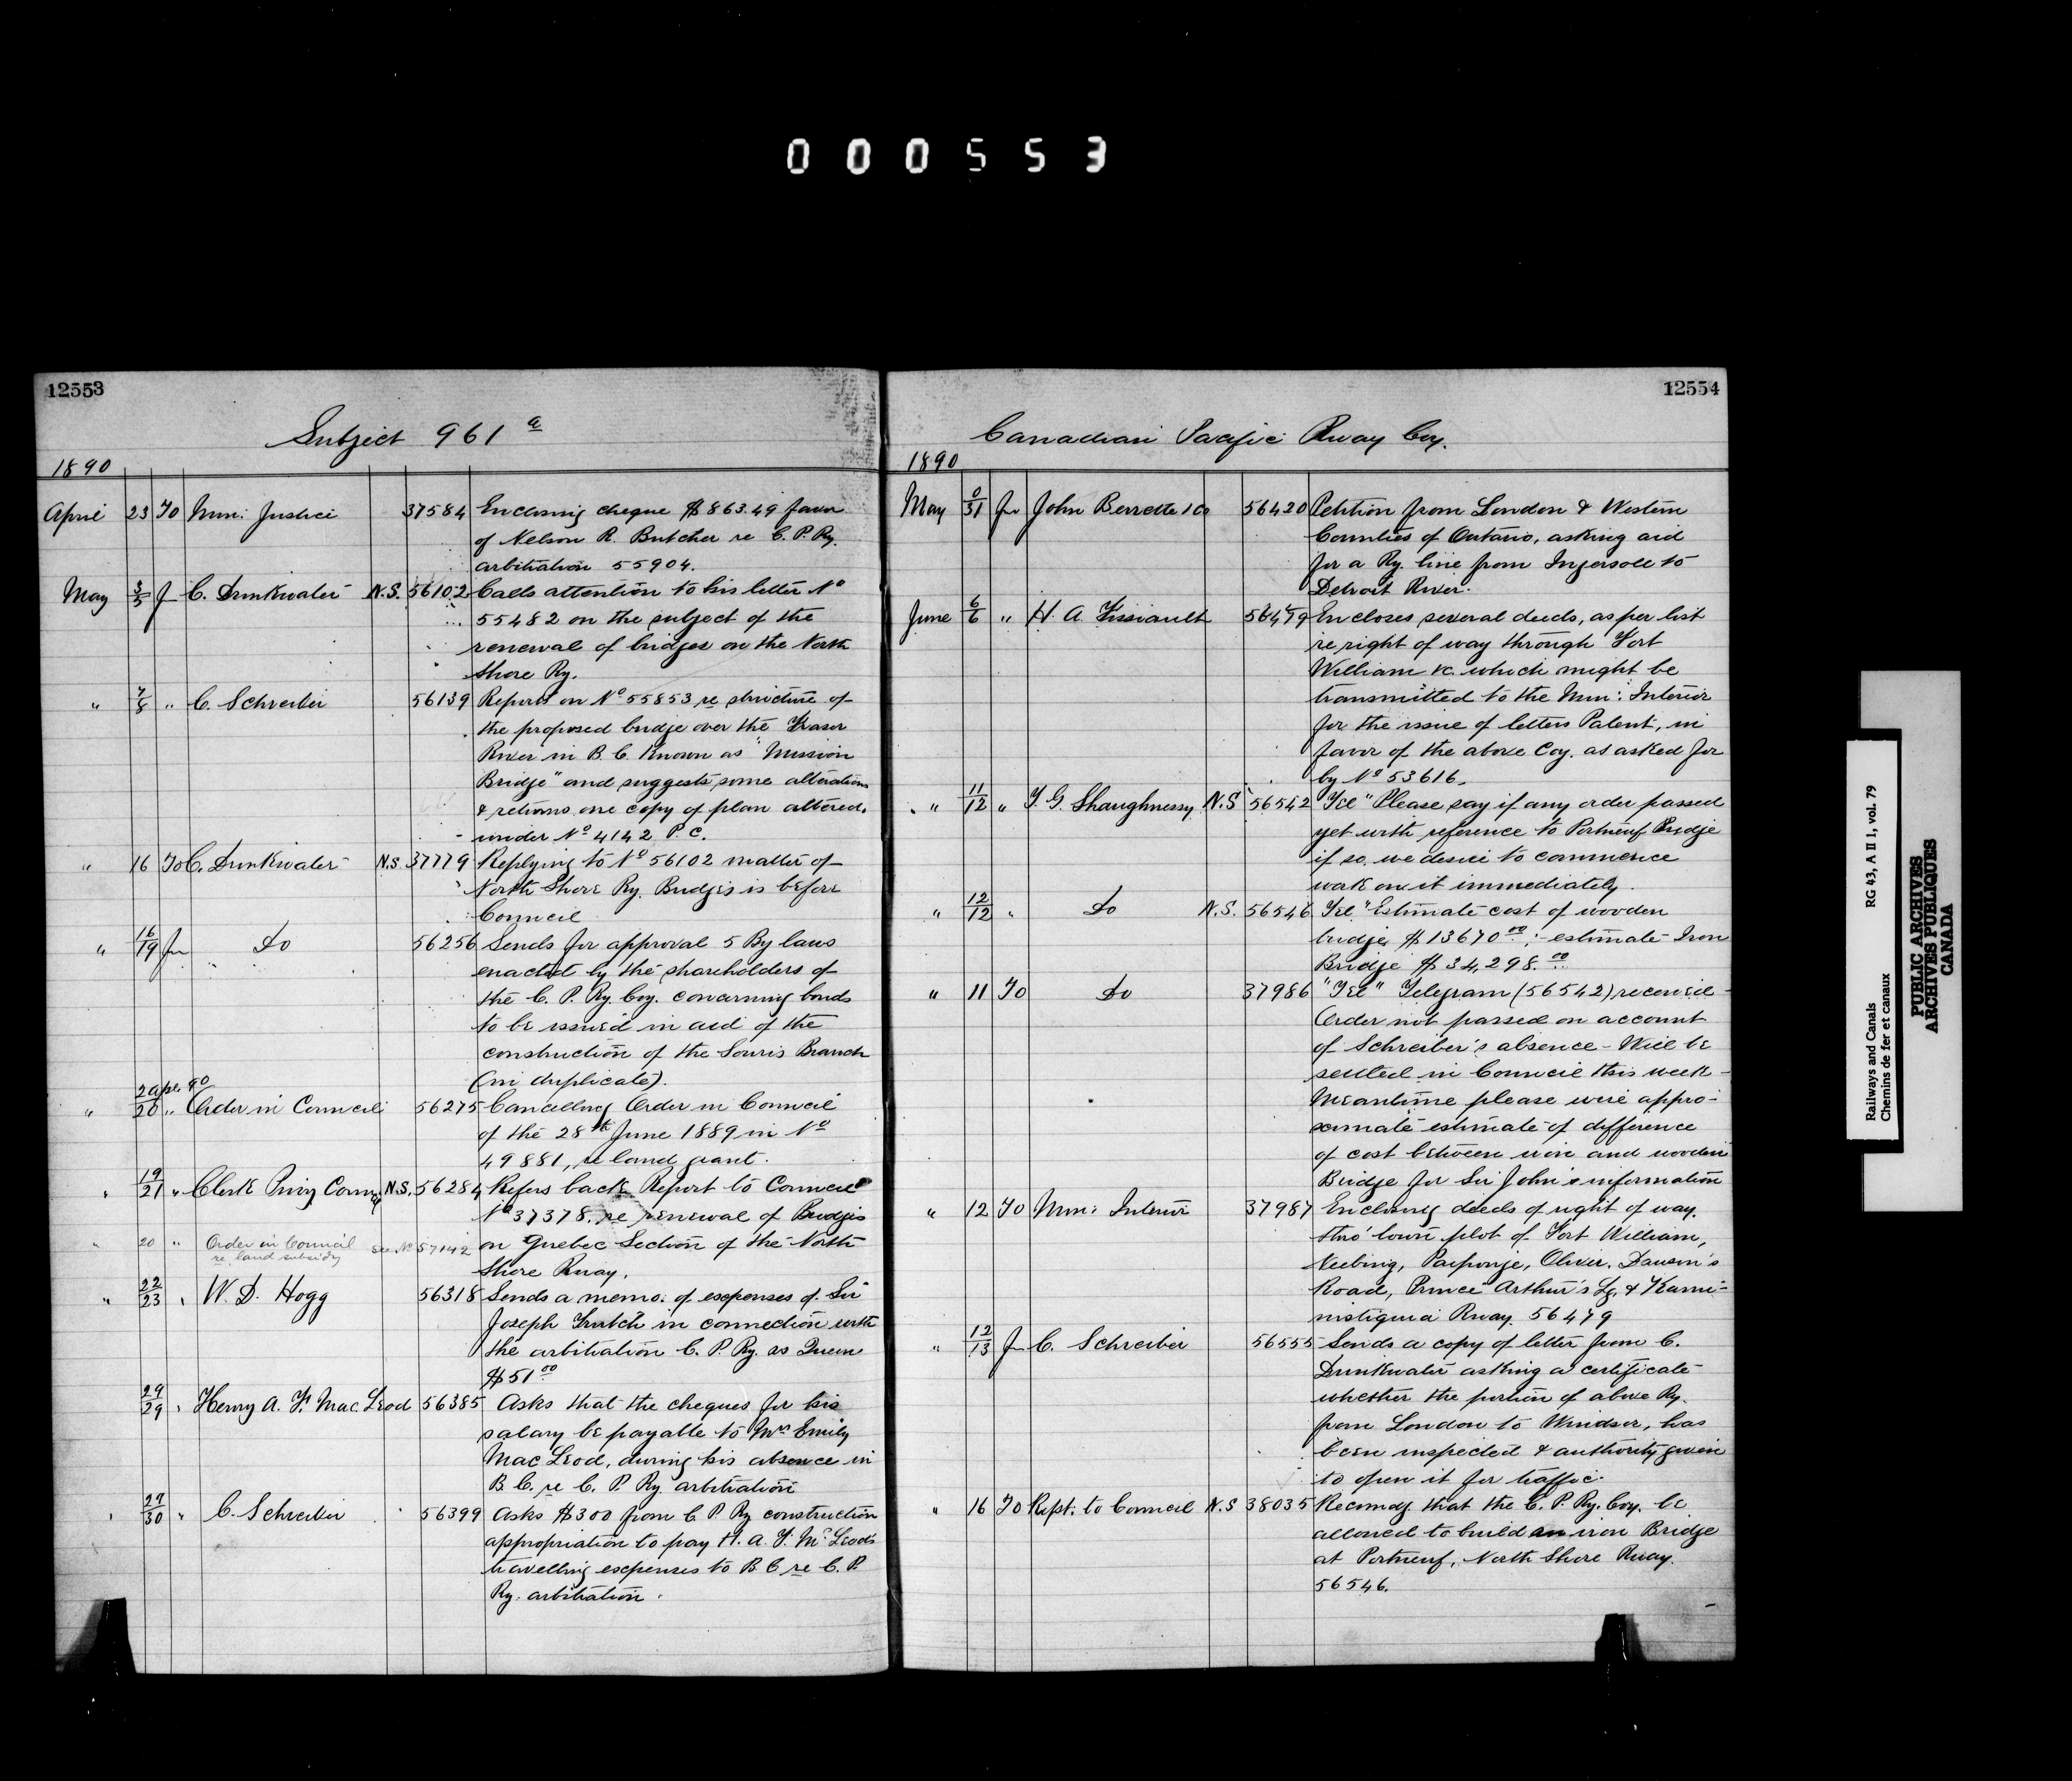 000553
12553
Subject 961 a
1890
April 23 To Min: Justice 37584 Enclosing cheque $863.49 favor
of Nelson R. Butcher re C. P. Ry.
arbitration 55904.
May 3/5 Fr C. Drinkwater N.S. 56102 Calls attention to his letter No
55482 on the subject of the
renewal of bridges on the North
Shore Ry.
" 7/8 " C. Schreiber 56139 Reports on No 55853 re structure of
the proposed bridge over the Fraser
River in B. C. Known as "Mission
Bridge" and suggests some alterations
& returns one copy of plan altered.
under No 4142 P. C.
" 16 To C. Drinkwater N.S. 37779 Replying to No 56102 matter of
North Shore Ry. Bridges is before
Council
" 16/19 Fr Do 56256 Sends for approval 5 By laws
enacted by the shareholders of
the C. P. Ry. Coy. concerning bonds
to be issued in aid of the
construction of the Souris Branch
(in duplicate).
" 2 apl. 90/20 " Order in Council 56275 Cancelling Order in Council
of the 28th June 1889 in No
49881, re land grant.
" 19/21 " Clerk Privy Council N.S. 56284 Refers back Report to Council
No 37378. re renewal of Bridges
" 20 " Order in Council re land subsidy See No 57142 on Quebec Section of the North
Shore Rway.
" 22/23 " W. D. Hogg 56318 Sends a memo. of expenses of Sir
Joseph Trutch in connection with
the arbitration C. P. Ry. vs Queen
$51.00
29/29 " Henry A. F. Mac Leod 56385 Asks that the cheques for his
salary be payable to Mrs Emily
Mac Leod, during his absence in
B. C. re C. P. Ry. arbitration
" 29/30 " C. Schreiber 56399 Asks $300 from C. P. Ry construction
appropriation to pay H. A. F. McLeod's
travelling expenses to B. C re C. P.
Ry. arbitration.
12554
Canadian Pacific Rway Coy.
1890
May 0/31 Fr John 56420 Petition from London & Western
Counties of Ontario, asking aid
for a Ry. line from Ingersoll to
Detroit River.
June 6/6 " H. A. Fissiault 56479 Encloses several deeds, as per list
re right of way through Fort
William &c. which might be
transmitted to the Min: Interior
for the issue of letters Patent, in
favor of the above Coy. as asked for
by No 53616.
" 11/12 " T. G. Shaughnessy N.S 56542 "Tel" Please say if any order passed
yet with reference to Portneuf Bridge
if so we desire to commence
work on it immediately.
" 12/12 " Do N.S. 56546 Tel "Estimate cost of wooden
bridge $13670.00; - estimate Iron
Bridge $34,298.00
" 11 To Do 37986 "Tel" Telegram (56542) received -
Order not passed on account
of Schreiber's absence - Will be
settled in Council this week -
Meantime please wire appro-
ximate estimate of difference
of cost between iron and wooden
Bridge for Sir John's information
" 12 To Min: Interior 37987 Enclosing deeds of right of way.
thro' town plot of Fort William,
Neebing, Paipoonje, Oliver, Dawson's
Road, Prince Arthur's Lg. & Kami-
nistiquia Rway. 56479
" 12/13 Fr C. Schreiber 56555 Sends a copy of letter from C.
Drinkwater asking a certificate
whether the portion of above Ry.
from London to Windsor, has
been inspected & authority given
to open it for traffic.
" 16 To Rept. to Council N.S 38035 Recomdg that the C. P. Ry. Coy. be
allowed to build an iron Bridge
at Portneuf, North Shore Rway.
56546.
Railways and Canals RG 43, A II 1, vol. 79
Chemins de fer et canaux
PUBLIC ARCHIVES
ARCHIVES PUBLIQUES
CANADA